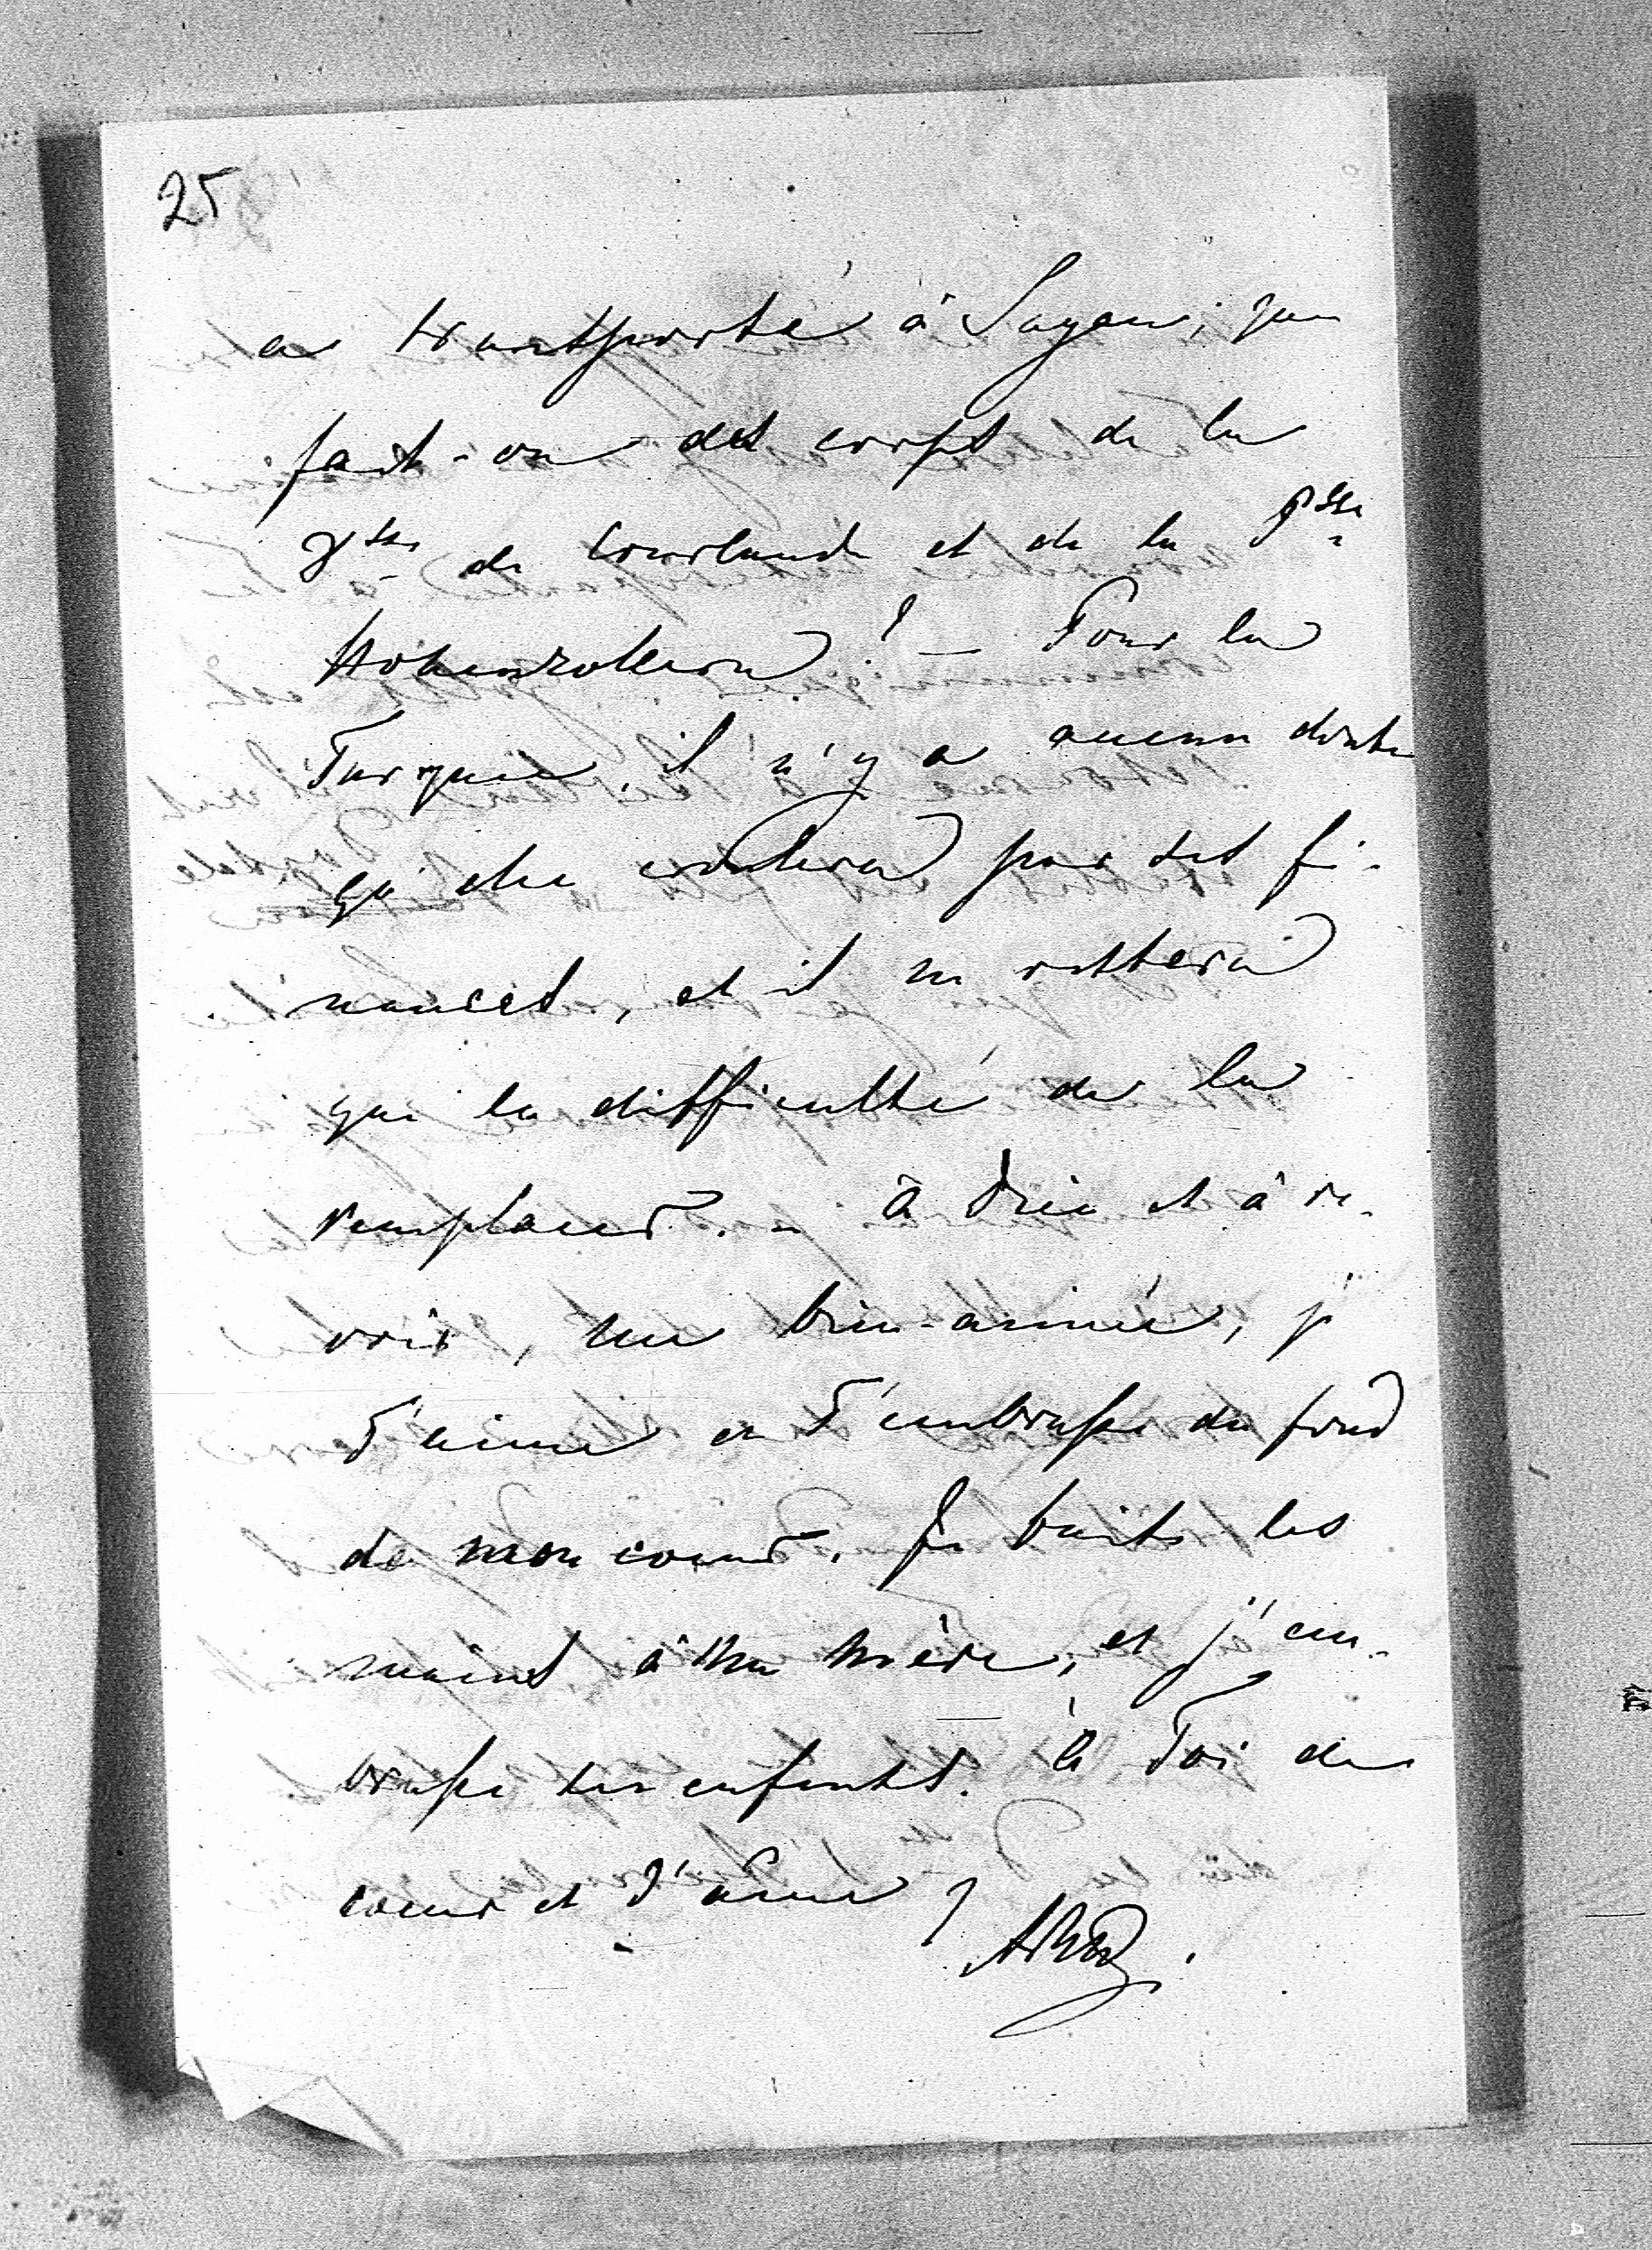 25
a transporté à Sagan; que
fait-on des corps de la
Dsse de Courlande et de la Psse
Hohenzollern? — Pour la
Turquie, il n'y a aucun doute
qu'elle croulera par ses fi-
nances, et il ne restera
que la difficulté de la
remplacer. — à Dieu et à re-
voir, ma bien-aimée, je
T'aime et T'embrasse du fond
de mon coeur. Je baise les
mains à Ma Mère, et j'em-
brasse les enfants. à Toi de
coeur et d'âme